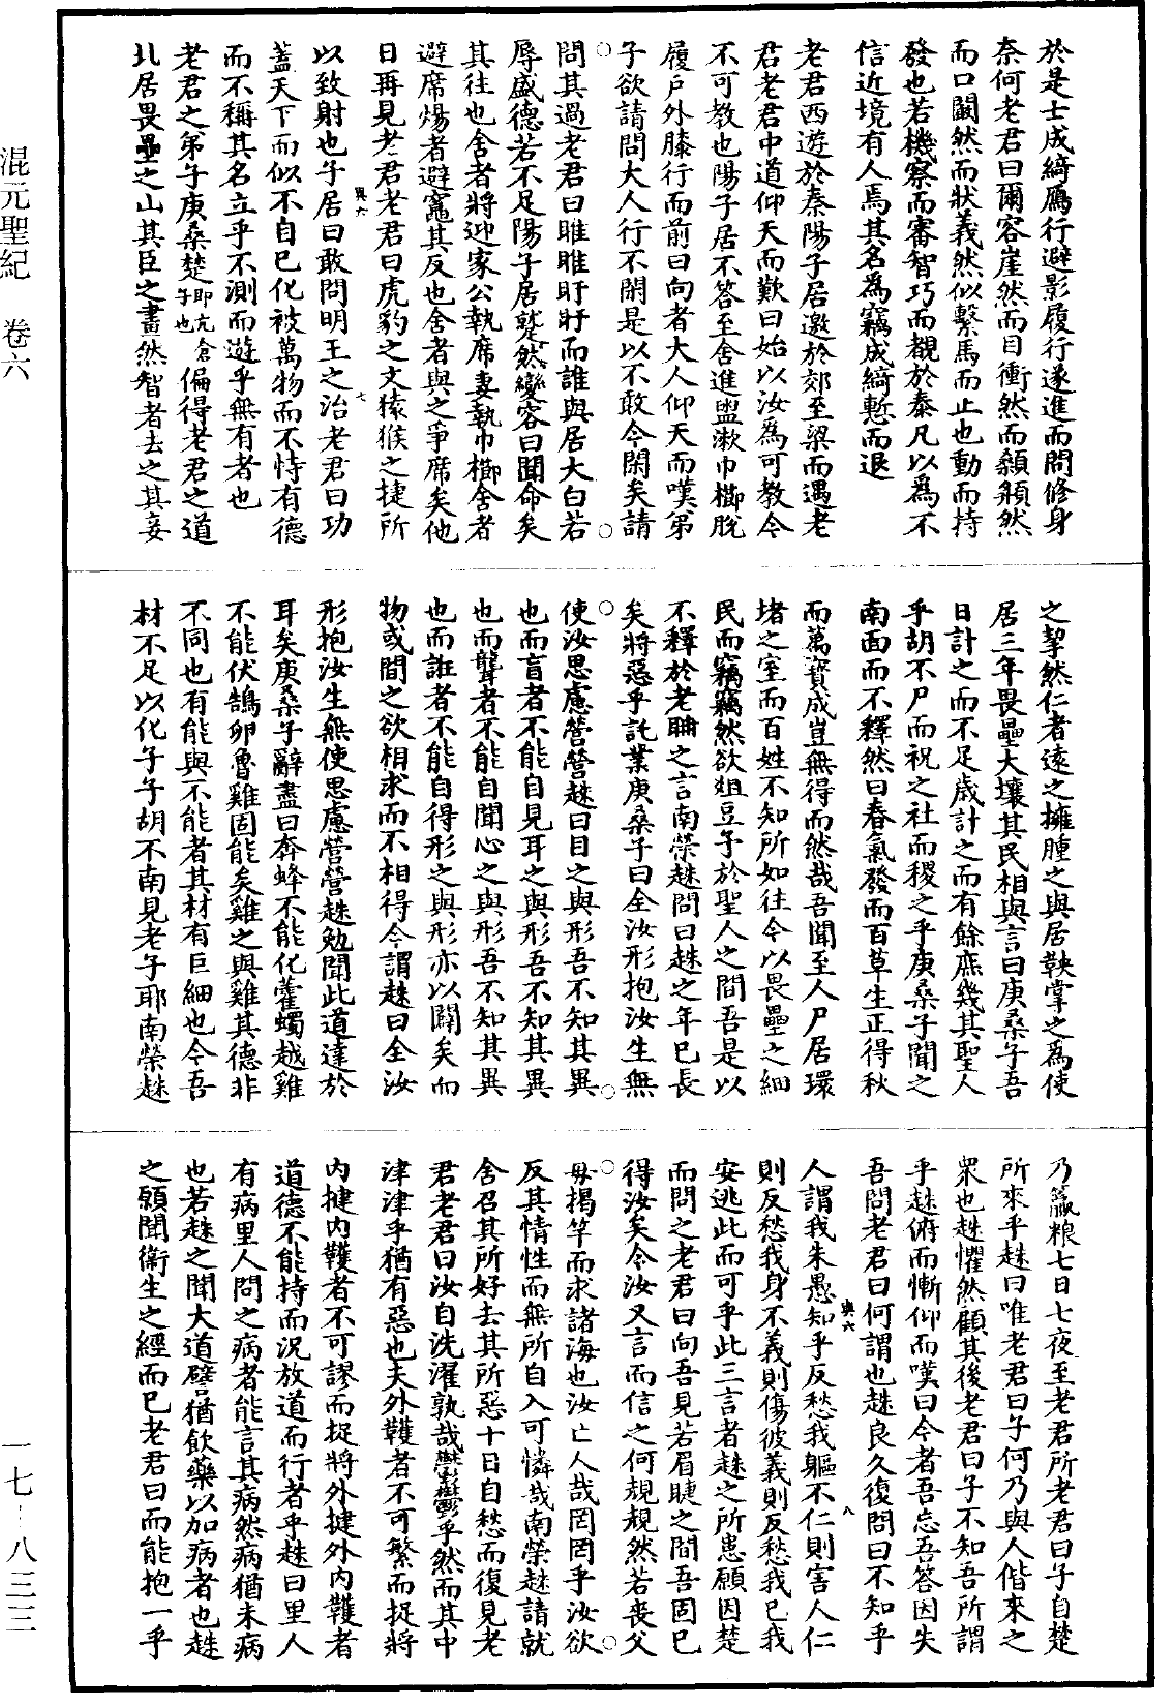 於是士成綺鴈行避影履行遂進而問修身
奈何老君曰爾容崖然而目衝然而顙頯然
而口闞然而狀義然似繫馬而止也動而持
發也若機察而審智巧而覩於泰凡以爲不
信近境有人焉其名爲竊成綺慙而退
老君西遊於秦陽子居邀於郊至梁而遇老
君老君中道仰天而歎曰始以汝爲可教今
不可教也陽子居不答至舍進盥漱巾櫛脫
履戶外膝行而前曰向者大人仰天而嘆弟
子欲請問大人行不閑是以不敢今閑矣請
問其過老君曰睢睢盱盱而誰與居大白若
辱盛德若不足陽子居蹵然變容曰聞命矣
其往也舍者將迎家公執席妻執巾櫛舍者
避席煬者避竈其反也舍者與之爭席矣他
日再見老君老君曰虎豹之文猨猴之捷所
以致射也子居曰敢問明王之治老君曰功
蓋天下而似不自已化被萬物而不恃有德
而不稱其名立乎不測而遊乎無有者也
老君之弟子庚桑楚即亢倉子也偏得老君之道
北居畏壘之山其臣之畫然智者去之其妾
之挈然仁者遠之擁腫之與居鞅掌之爲使
居三年畏壘大壤其民相與言曰庚桑子吾
日計之而不足歲計之而有餘庶幾其聖人
乎胡不尸而祝之社而稷之乎庚桑子聞之
南面而不釋然曰春氣發而百草生正得秋
而萬寶成豈無得而然哉吾聞至人尸居環
堵之室而百姓不知所如往今以畏壘之細
民而竊竊然欲俎豆予於聖人之間吾是以
不釋於老聃之言南榮趎問曰趎之年已長
矣將惡乎託業庚桑子曰全汝形抱汝生無
使汝思慮營營趎曰目之與形吾不知其異
也而盲者不能自見耳之與形吾不知其異
也而聾者不能自聞心之與形吾不知其異
也而誑者不能自得形之與形亦以闢矣而
物或間之欲相求而不相得今謂趎曰全汝
形抱汝生無使思慮營營趎勉聞此道達於
耳矣庚桑子辭盡曰奔蜂不能化藿蠋越雞
不能伏鵠卵魯雞固能矣雞之與雞其德非
不同也有能與不能者其材有巨細也今吾
材不足以化子子胡不南見老子耶南榮趎
乃羸粮七日七夜至老君所老君曰子自楚
所來乎趎曰唯老君曰子何乃與人偕來之
衆也趎懼然顧其後老君曰子不知吾所謂
乎趎俯而慚仰而嘆曰今者吾忘吾答因失
吾問老君曰何謂也趎良久復問曰不知乎
人謂我朱愚知乎反愁我軀不仁則害人仁
則反愁我身不義則傷彼義則反愁我已我
安逃此而可乎此三言者趎之所患願因楚
而問之老君曰向吾見若眉睫之間吾固已
得汝矣今汝又言而信之何規規然若喪父
母揭竿而求諸海也汝亡人哉罔罔乎汝欲
反其情性而無所自入可憐哉南榮趎請就
舍召其所好去其所惡十日自愁而復見老
君老君曰汝自洗濯孰哉鬱鬱乎然而其中
津津乎猶有惡也夫外韄者不可繁而捉將
內揵內韄者不可謬而捉將外揵外內韄者
道德不能持而況放道而行者乎趎曰里人
有病里人問之病者能言其病然病猶未病
也若趎之聞大道譬猶飲藥以加病者也趎
之願聞衛生之經而已老君曰而能抱一乎
與六
七
與六
八
混元聖紀 卷六
一七-八三三